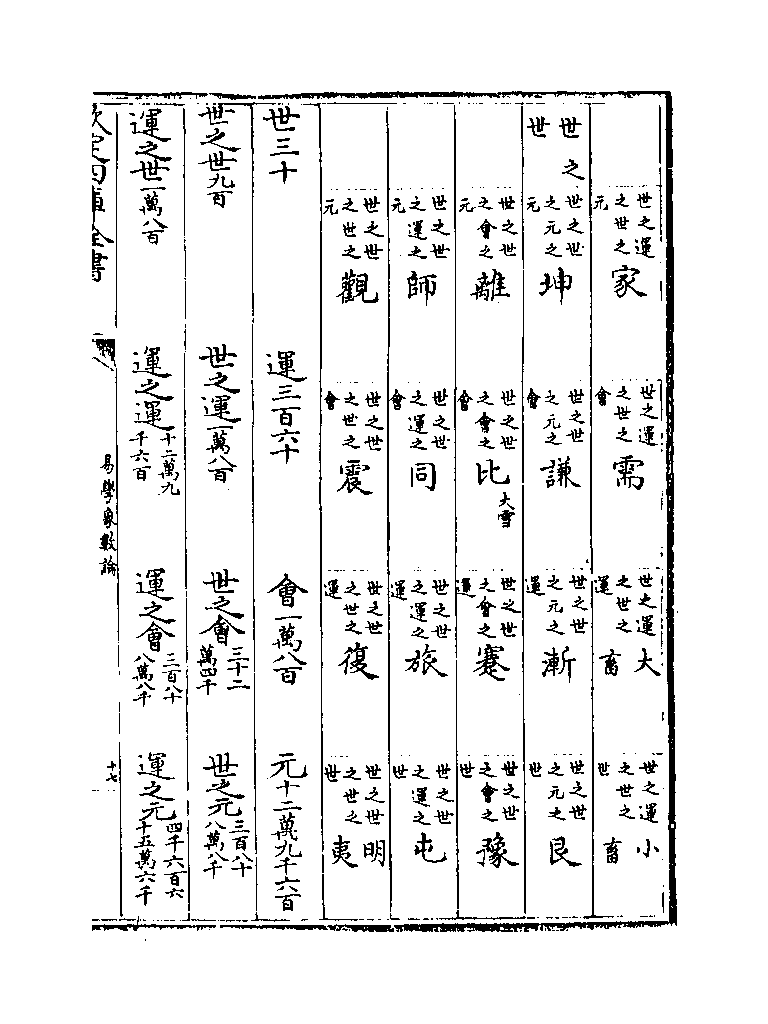 世之運之世之元 家 世之運之世之會 需 世之運之世之運 大畜 世之運之世之世 小畜
世之世 世之世之元之元 坤 世之世之元之會 謙 世之世之元之運 漸 世之世之元之世 艮
世之世之會之元 離 世之世之會之會 比 大雪 世之世之會之運 蹇 世之世之會之世 豫
世之世之運之元 師 世之世之運之會 同 世之世之運之運 旅 世之世之運之世 屯
世之世之世之元 觀 世之世之世之會 震 世之世之世之運 復 世之世之世之世 明夷
世三十 運三百六十 會一萬八百 元十二萬九千六百
世之世九百 世之運一萬八百 世之會三十二萬四千 世之元三百八十八萬八千
運之世一萬八百 運之運十二萬九千六百 運之會三百八十八萬八千 運之元四千六百六十五萬六千
欽定四庫全書 易學象數論 十七